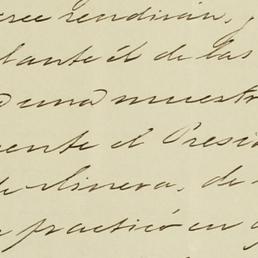 cree rendirán,
elante él de las
una muestr
mente el Presi
de Minera, de
practicó en